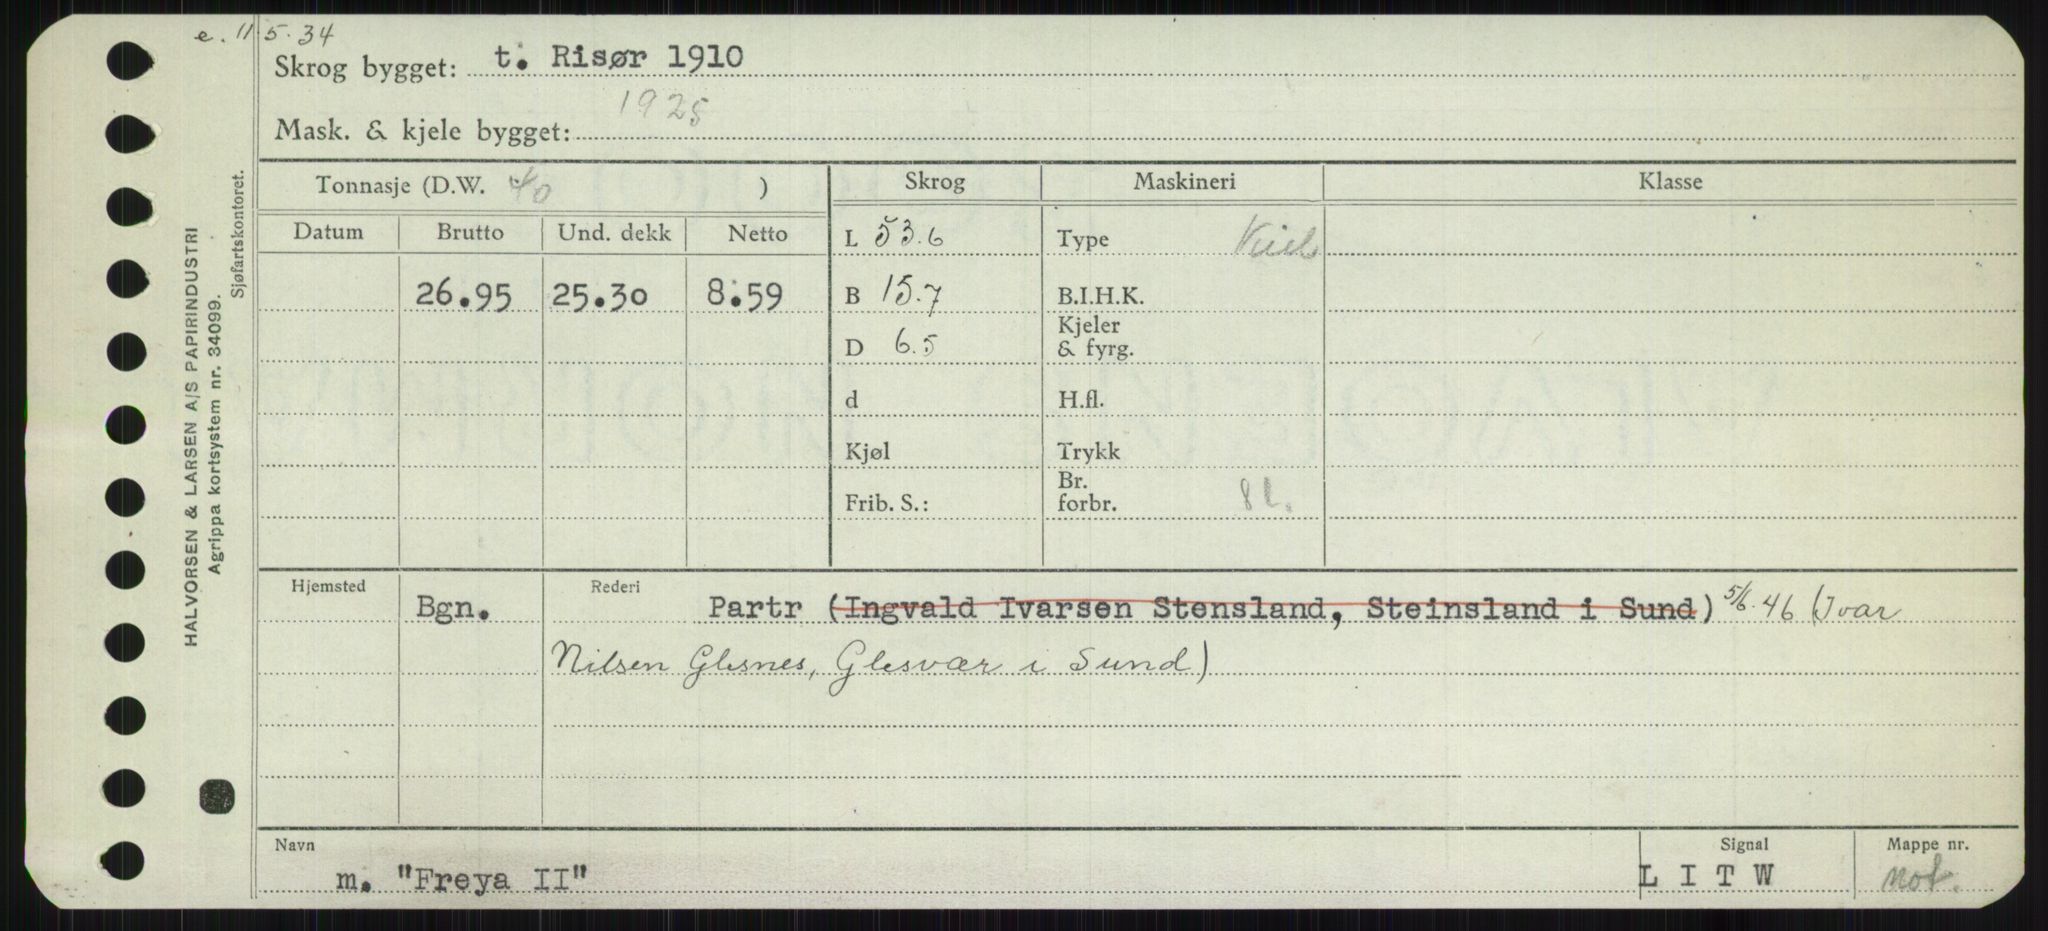 e. 11.5.34
Skrog bygget: t. Risør 1910
1925
Mask. & kjele bygget:
Tonnasje (D.W. 40 )
Skrog
Maskineri
Klasse
Datum
Brutto
Und. dekk
Netto
26.95
25.30
8.59
L 53.6
B 15.7
D 6.5
d
Kjøl
Frib. S.:
Type
B.I.H.K.
Kjeler
& fyrg.
H.fl.
Trykk
Br.
forbr. 8 l.
Hjemsted
Bgn.
Rederi
Partr (Ingvald Ivarsen Stensland, Steinsland i Sund) 5/6.46 (Ivar
Nilsen Glesnes, Glesvær i Sund)
Navn
m. "Freya II"
Signal
L I T W
Mappe nr.
not.
HALVORSEN & LARSEN A/S PAPIRINDUSTRI
Agrippa kortsystem nr. 34099.
Sjøfartskontoret.